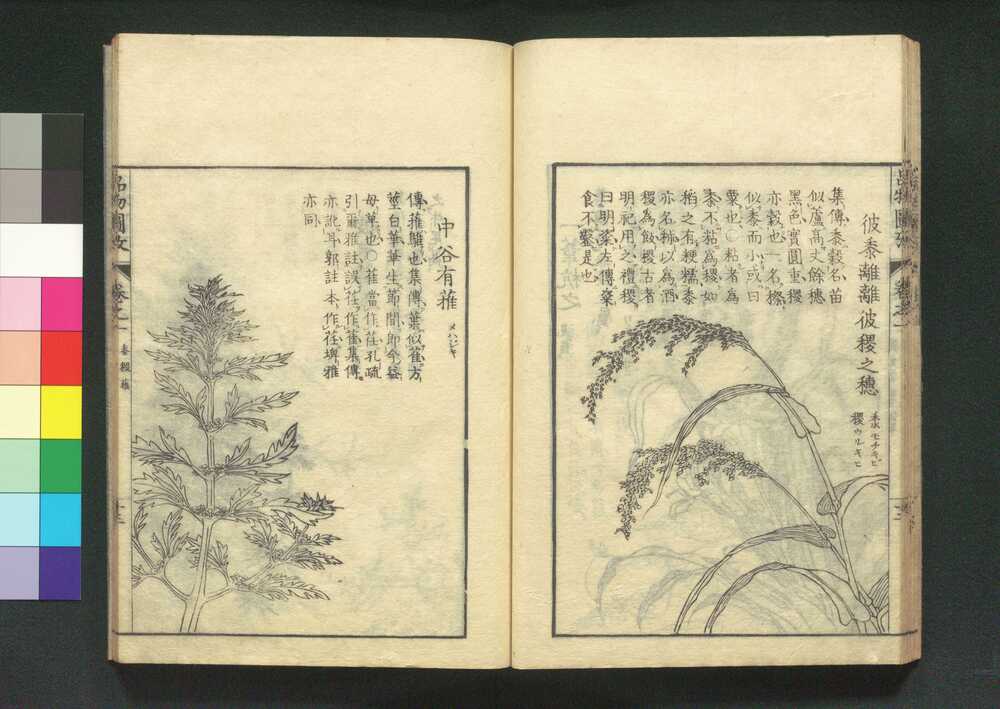 彼黍離離彼稷之穗
黍モチキビ
稷ウルキビ
集傳黍穀名苗
似蘆高丈餘穗
黑色實圓重稷
亦穀也一名穄
似黍而小或曰
粟也〇粘者為
黍不粘為稷如
稻之有粳糯黍
亦名秫以為酒
稷為飯稷古者
明祀用之禮稷
曰明粢左傳粢
食不鑿是也
品物圖攷
卷之一
十三
中谷有蓷
メハジキ
傳蓷鵻也集傳葉似萑方
莖白華華生節間即今益
母草也〇萑當作茬孔疏
引爾雅註誤茬作萑集傳
亦訛耳郭註本作茬埤雅
亦同
品物圖攷
卷之一
黍稷蓷
十三